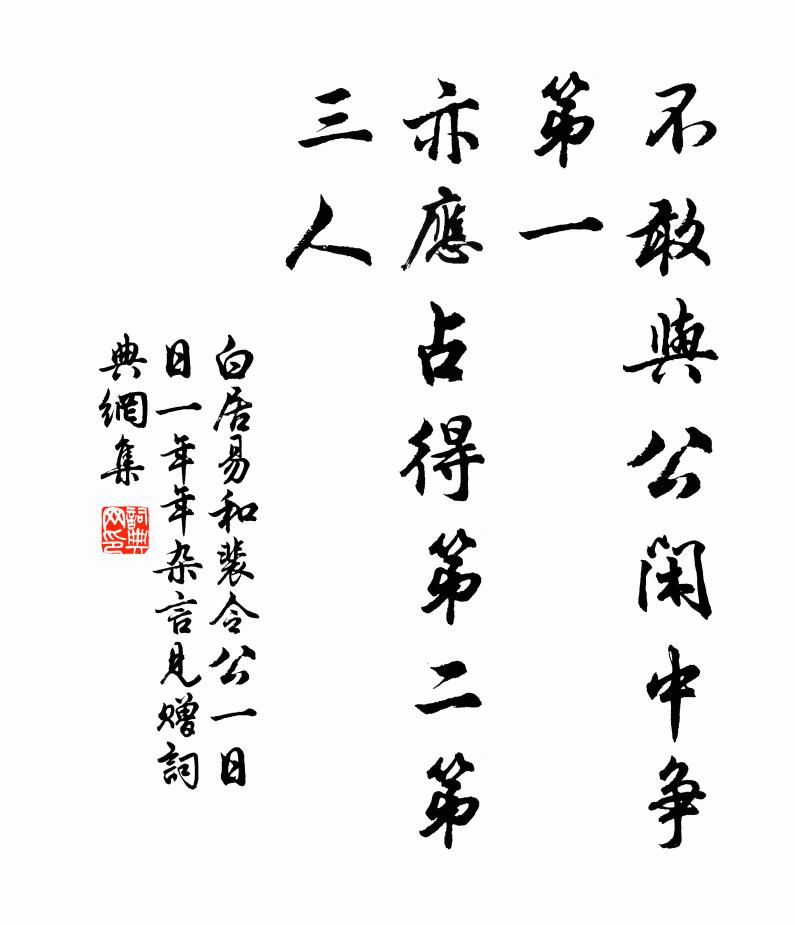 不敢與公閑中爭
第一
亦應占得第二第
三人
白居易和裴令公一日
日一年年杂言見贈詞
典網集
詞典
网印